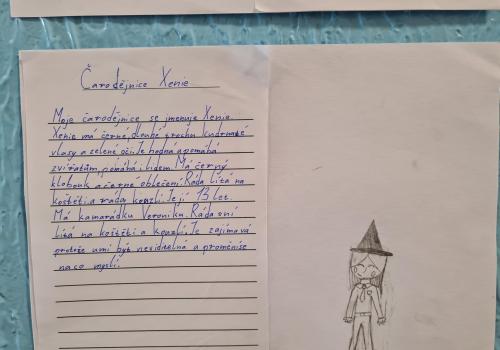 Čarodějnice Xenie
Moje čarodějnice se jmenuje Xenie.
Xenie má černé, dlouhé trochu kudrnaté
vlasy a zelené oči. Je hodná a pomáhá
zvířatům, pomáhá i lidem. Má černý
klobouk a černé oblečení. Ráda lítá na
koštěti a ráda kouzlí. Je jí 13 let.
Má kamarádku Veroniku. Ráda s ní
lítá na koštěti a kouzlí. Je zajímavá
protože umí být neviditelná a proměnise
na co myslí.